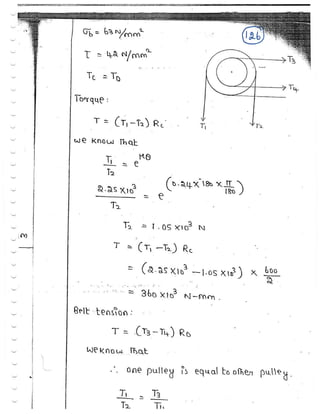 σb = 63 N/mm²
126
τ = 42 N/mm²
T3
TC = TD
T4
Torque:
T = (T1 - T2) RC
T1
T2
we know that
T1/T2 = e^μθ
2.25 × 10³/T2 = e^(0.24 × 180 × π/180)
T2 = 1.05 × 10³ N
T = (T1 - T2) RC
= (2.25 × 10³ - 1.05 × 10³) × 600/2
= 360 × 10³ N-mm.
Belt tension:
T = (T3 - T4) RD
we know that
∴ one pulley is equal to other pulley.
T1/T2 = T3/T4